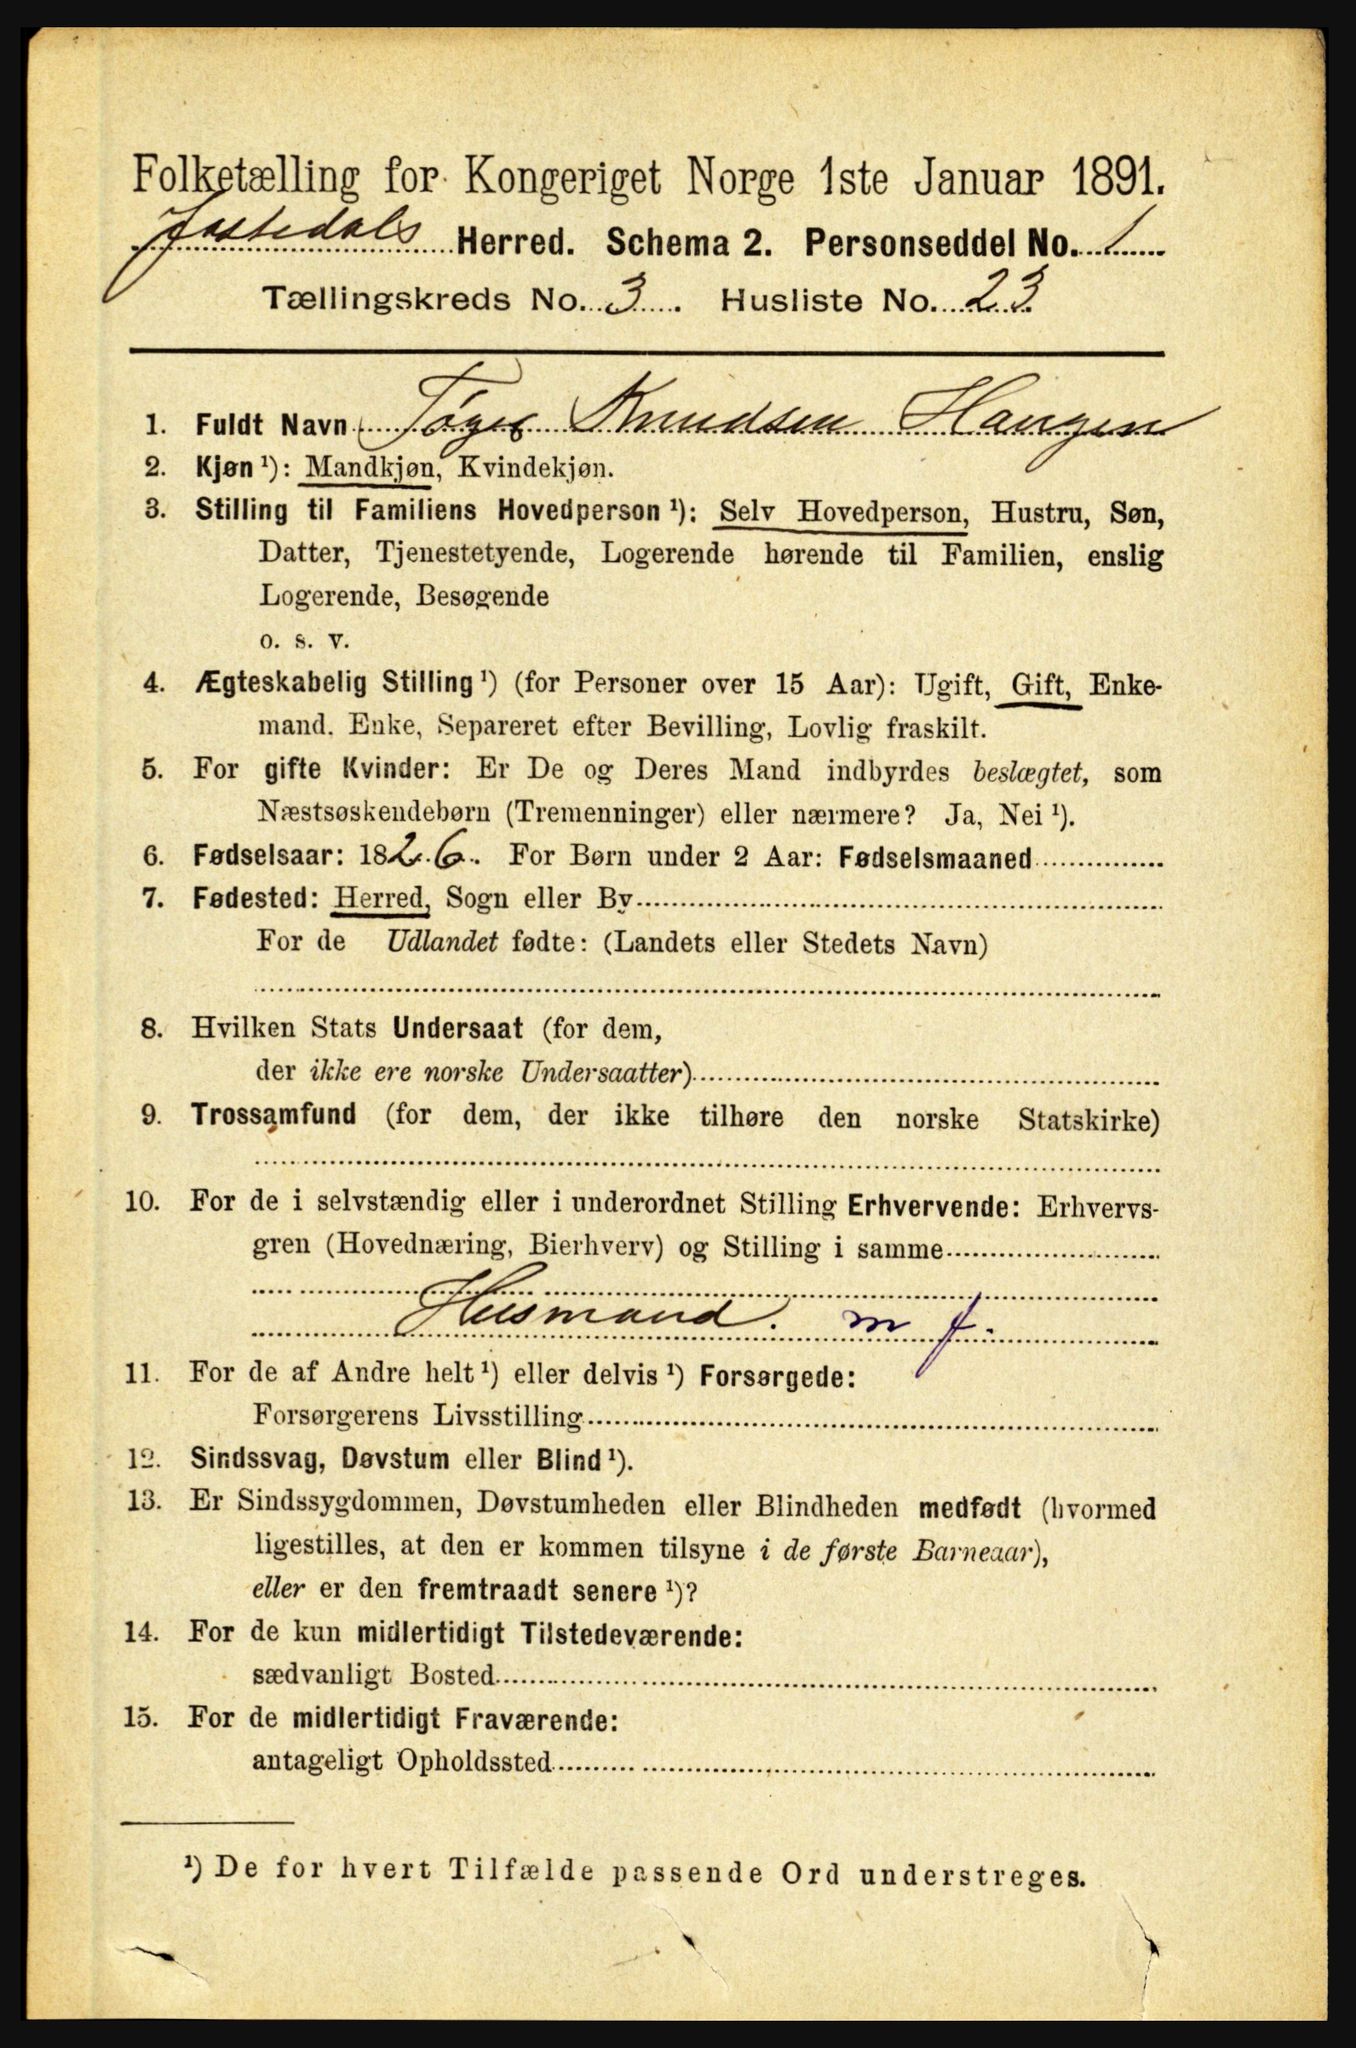 Folketælling for Kongeriget Norge 1ste Januar 1891.
Jostedals Herred. Schema 2. Personseddel No. 1
Tællingskreds No. 3. Husliste No. 23
1. Fuldt Navn Tøger Knudsen Haugen
2. Kjøn ¹): Mandkjøn, Kvindekjøn.
3. Stilling til Familiens Hovedperson ¹): Selv Hovedperson, Hustru, Søn,
Datter, Tjenestetyende, Logerende hørende til Familien, enslig
Logerende, Besøgende
o. s. v.
4. Ægteskabelig Stilling ¹) (for Personer over 15 Aar): Ugift, Gift, Enke-
mand. Enke, Separeret efter Bevilling, Lovlig fraskilt.
5. For gifte Kvinder: Er De og Deres Mand indbyrdes beslægtet, som
Næstsøskendebørn (Tremenninger) eller nærmere? Ja, Nei ¹).
6. Fødselsaar: 1826. For Børn under 2 Aar: Fødselsmaaned
7. Fødested: Herred, Sogn eller By
For de Udlandet fødte: (Landets eller Stedets Navn)
8. Hvilken Stats Undersaat (for dem,
der ikke ere norske Undersaatter)
9. Trossamfund (for dem, der ikke tilhøre den norske Statskirke)
10. For de i selvstændig eller i underordnet Stilling Erhvervende: Erhvervs-
gren (Hovednæring, Bierhverv) og Stilling i samme
Husmand. m j.
11. For de af Andre helt ¹) eller delvis ¹) Forsørgede:
Forsørgerens Livsstilling
12. Sindssvag, Døvstum eller Blind ¹).
13. Er Sindssygdommen, Døvstumheden eller Blindheden medfødt (hvormed
ligestilles, at den er kommen tilsyne i de første Barneaar),
eller er den fremtraadt senere ¹)?
14. For de kun midlertidigt Tilstedeværende:
sædvanligt Bosted
15. For de midlertidigt Fraværende:
antageligt Opholdssted
¹) De for hvert Tilfælde passende Ord understreges.